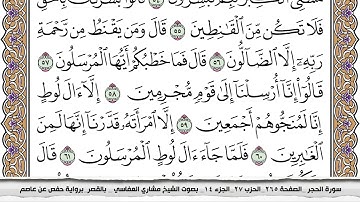 فَلَا تَكُن مِّنَ ٱلْقَٰنِطِينَ ٥٥ قَالَ وَمَن يَقْنَطُ مِن رَّحْمَةِ
رَبِّهِۦٓ إِلَّا ٱلضَّآلُّونَ ٥٦ قَالَ فَمَا خَطْبُكُمْ أَيُّهَا ٱلْمُرْسَلُونَ ٥٧
قَالُوٓا۟ إِنَّآ أُرْسِلْنَآ إِلَىٰ قَوْمٍ مُّجْرِمِينَ ٥٨ إِلَّآ ءَالَ لُوطٍ
إِنَّا لَمُنَجُّوهُمْ أَجْمَعِينَ ٥٩ إِلَّا ٱمْرَأَتَهُۥ قَدَّرْنَآ إِنَّهَا لَمِنَ
ٱلْغَٰبِرِينَ ٦٠ فَلَمَّا جَآءَ ءَالَ لُوطٍ ٱلْمُرْسَلُونَ ٦١ قَالَ
سورة الحجر الصفحة ٢٦٥ الحزب ٢٧ الجزء ١٤ بصوت الشيخ مشاري العفاسي بالقصر برواية حفص عن عاصم